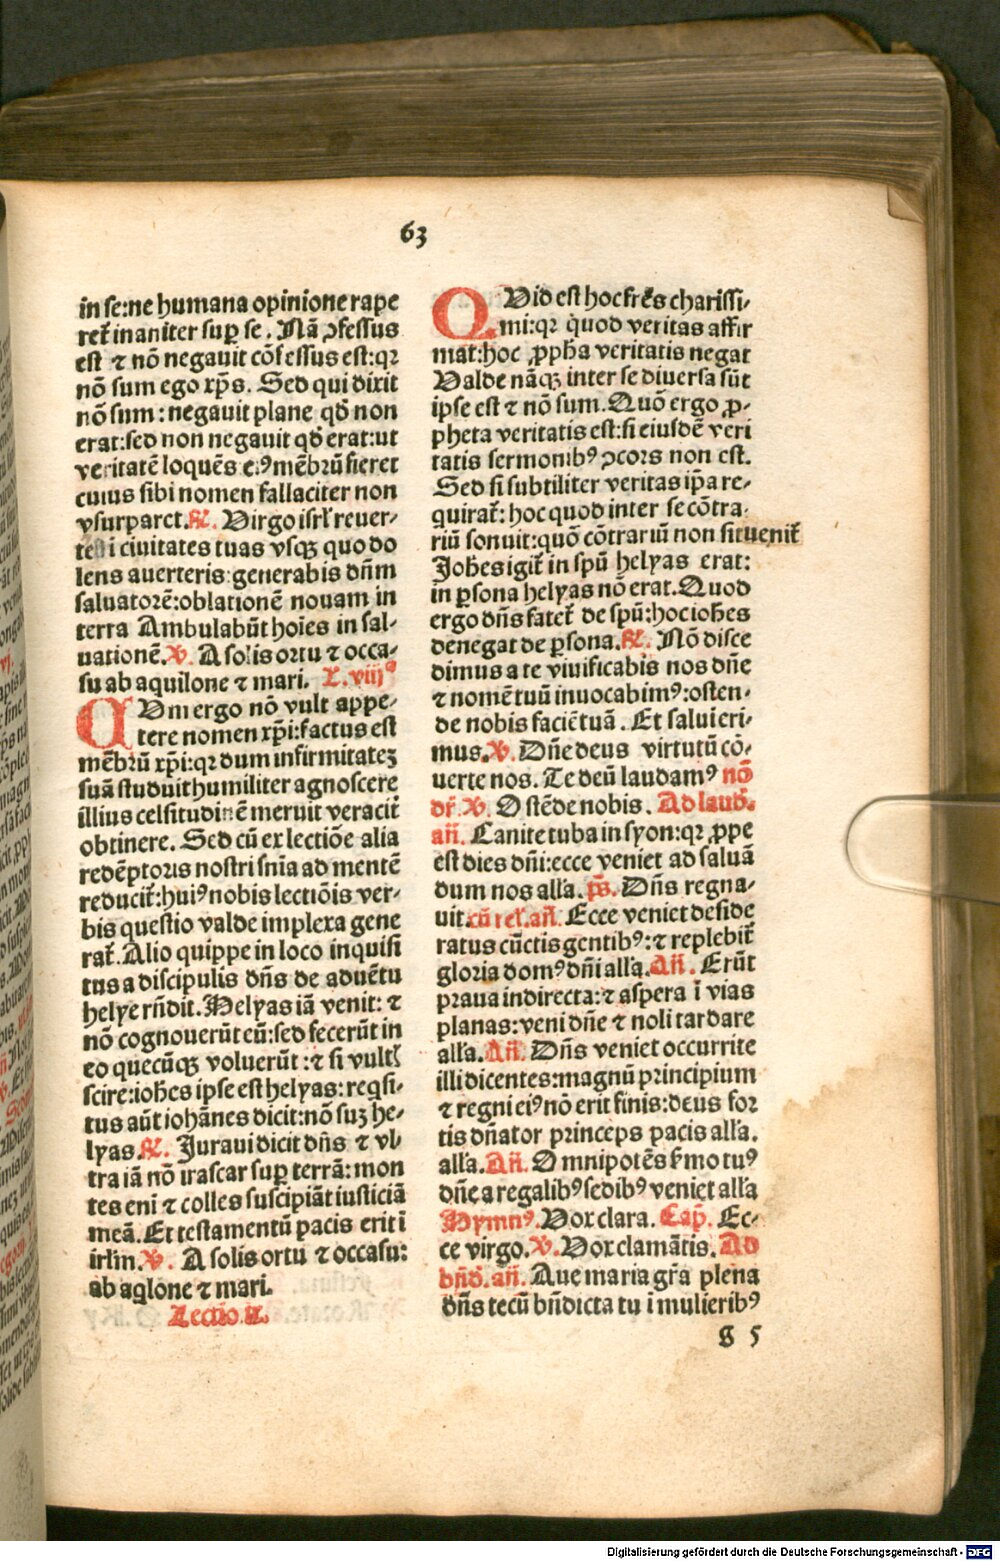 63
in se:ne humana opinione rape
ret᷑ inaniter suꝑ se. Nā ꝓfessus
est ⁊ nō negauit cōfessus est:qꝛ
nō sum ego xp̄s. Sed qui dixit
nō sum: negauit plane qd̄ non
erat:sed non negauit qd̄ erat:ut
veritatē loquēs eiꝰ mēbrū fieret
cuius sibi nomen fallaciter non
vsurparet. ℟. Virgo isrl̄ reuer-
te i ciuitates tuas vsqꝫ quo do
lens auerteris: generabis dn̄m
saluatorē:oblationē nouam in
terra Ambulabūt hoīes in sal-
uationē. ℣. A solis ortu ⁊ occa-
su ab aquilone ⁊ mari. L. viijª
QVm ergo nō vult appe-
tere nomen xp̄i:factus est
mēbrū xp̄i:qꝛ dum infirmitateꝫ
suā studuit humiliter agnoscere
illius celsitudinē meruit veracit᷑
obtinere. Sed cū ex lectiōe alia
redēptoris nostri sn̄ia ad mentē
reducit᷑:huiꝰ nobis lectiōis ver-
bis questio valde implexa gene
rat᷑. Alio quippe in loco inquisi
tus a discipulis dn̄s de aduētu
helye rn̄dit. Helyas iā venit: ⁊
nō cognouerūt eū:sed fecerūt in
eo quecūqꝫ voluerūt :⁊ si vultꝭ
scire:ioh̄es ipse est helyas: reqsi-
tus aūt iohānes dicit:nō suꝫ he-
lyas. ℟. Juraui dicit dn̄s ⁊ vl
tra iā nō irascar suꝑ terrā: mon
tes eni ⁊ colles suscipiāt iusticiā
meā. Et testamentū pacis erit ī
irl̄m. ℣. A solis ortu ⁊ occasu:
ab aqlone ⁊ mari.
Lectio. ix.
QVid est hoc fr̄es charissi-
mi:qꝛ quod veritas affir
mat:hoc ꝓph̄a veritatis negat
Valde nāqꝫ inter se diuersa sūt
ipse est ⁊ nō sum. Quō ergo ꝓ-
pheta veritatis est:si eiusdē veri
tatis sermonibꝰ ꝯcors non est.
Sed si subtiliter veritas ip̄a re-
quirat᷑: hoc quod inter se cōtra-
riū sonuit:quō cōtrariū non sit uenit᷑
Joh̄es igit᷑ in spū helyas erat:
in ꝑsona helyas nō erat. Quod
ergo dn̄s fatet᷑ de spū:hoc ioh̄es
denegat de ꝑsona. ℟. Nō disce
dimus a te viuificabis nos dn̄e
⁊ nomē tuū inuocabimꝰ:osten-
de nobis faciē tuā. Et salui eri-
mus. ℣. Dn̄e deus virtutū cō-
uerte nos. Te deū laudamꝰ nō
dr̄. ℣. Ostēde nobis. Ad laud̄.
an̄. Canite tuba in syon:qꝛ ꝓpe
est dies dn̄i:ecce veniet ad saluā
dum nos all̄a. ps̄. Dn̄s regna-
uit. cū rel̄. an̄. Ecce veniet deside
ratus cūctis gentibꝰ:⁊ replebit᷑
gloria domꝰ dn̄i all̄a. An̄. Erūt
praua in directa:⁊ aspera ī vias
planas:veni dn̄e ⁊ noli tardare
all̄a. An̄. Dn̄s veniet occurrite
illi dicentes:magnū principium
⁊ regni eiꝰ nō erit finis:deus for
tis dn̄ator princeps pacis all̄a.
all̄a. An̄. Omnipotēs s̄mo tuꝰ
dn̄e a regalibꝰ sedibꝰ veniet all̄a
Hymnꝰ. Vox clara. Cap̄. Ec-
ce virgo. ℣. Vox clamātis. Ad
bn̄d. an̄. Aue maria gr̄a plena
dn̄s tecū bn̄dicta tu i mulieribꝰ
g 5
Digitalisierung gefördert durch die Deutsche Forschungsgemeinschaft - DFG